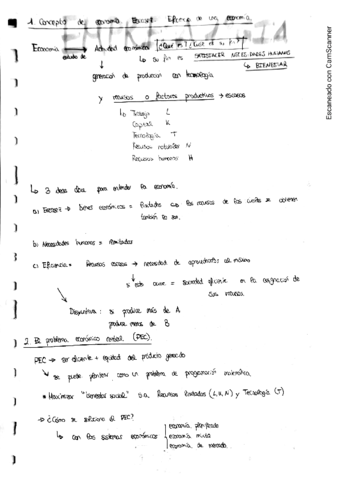 1. Concepto de economía. Eficiencia de una economía.
Economía → Actividad económica
estudio de
↳ su fin es SATISFACER NECESIDADES HUMANAS
↳ BIENESTAR
generación de producción con tecnología
y recursos o factores productivos → escasos
↳ Trabajo L
Capital K
Tecnología T
Recursos naturales N
Recursos humanos H
↳ 3 ideas clave para entender la economía.
a) Escasez → bienes económicos = limitados los recursos de los cuales se obtienen
también lo son.
b) Necesidades humanas = ilimitadas
c) Eficiencia = Recursos escasos → necesidad de aprovecharlos al máximo
si esto ocurre = sociedad eficiente en la asignación de
sus recursos
Disyuntiva: si produce más de A
produce menos de B
2. El problema económico central (PEC).
PEC → ser eficiente + equidad del producto generado
se puede plantear como un problema de programación matemática
• Maximizar "bienestar social" s.a. Recursos limitados (L, K, N) y Tecnología (T)
→ ¿Cómo se soluciona el PEC?
↳ con los sistemas económicos
economía planificada
economía mixta
economía de mercado.
Escaneado con CamScanner